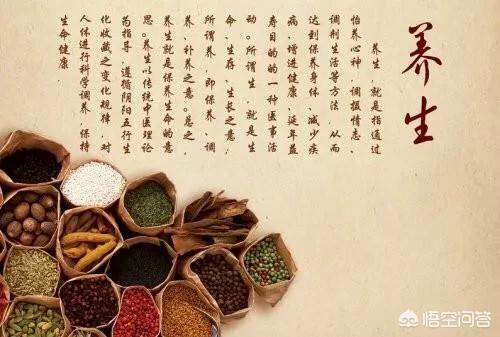 养生
养生，就是指通过
怡养心神、调摄情志、
调剂生活等方法，从而
达到保养身体、减少疾
病、增进健康、延年益
寿目的的一种医事活
动。所谓生，就是生
命、生存、生长之意；
所谓养，即保养、调
养、补养之意。总之，
养生就是保养生命的意
思。养生以传统中医理论
为指导，遵循阴阳五行生
化收藏之变化规律，对
人体进行科学调养，保持
生命健康。
悟空问答